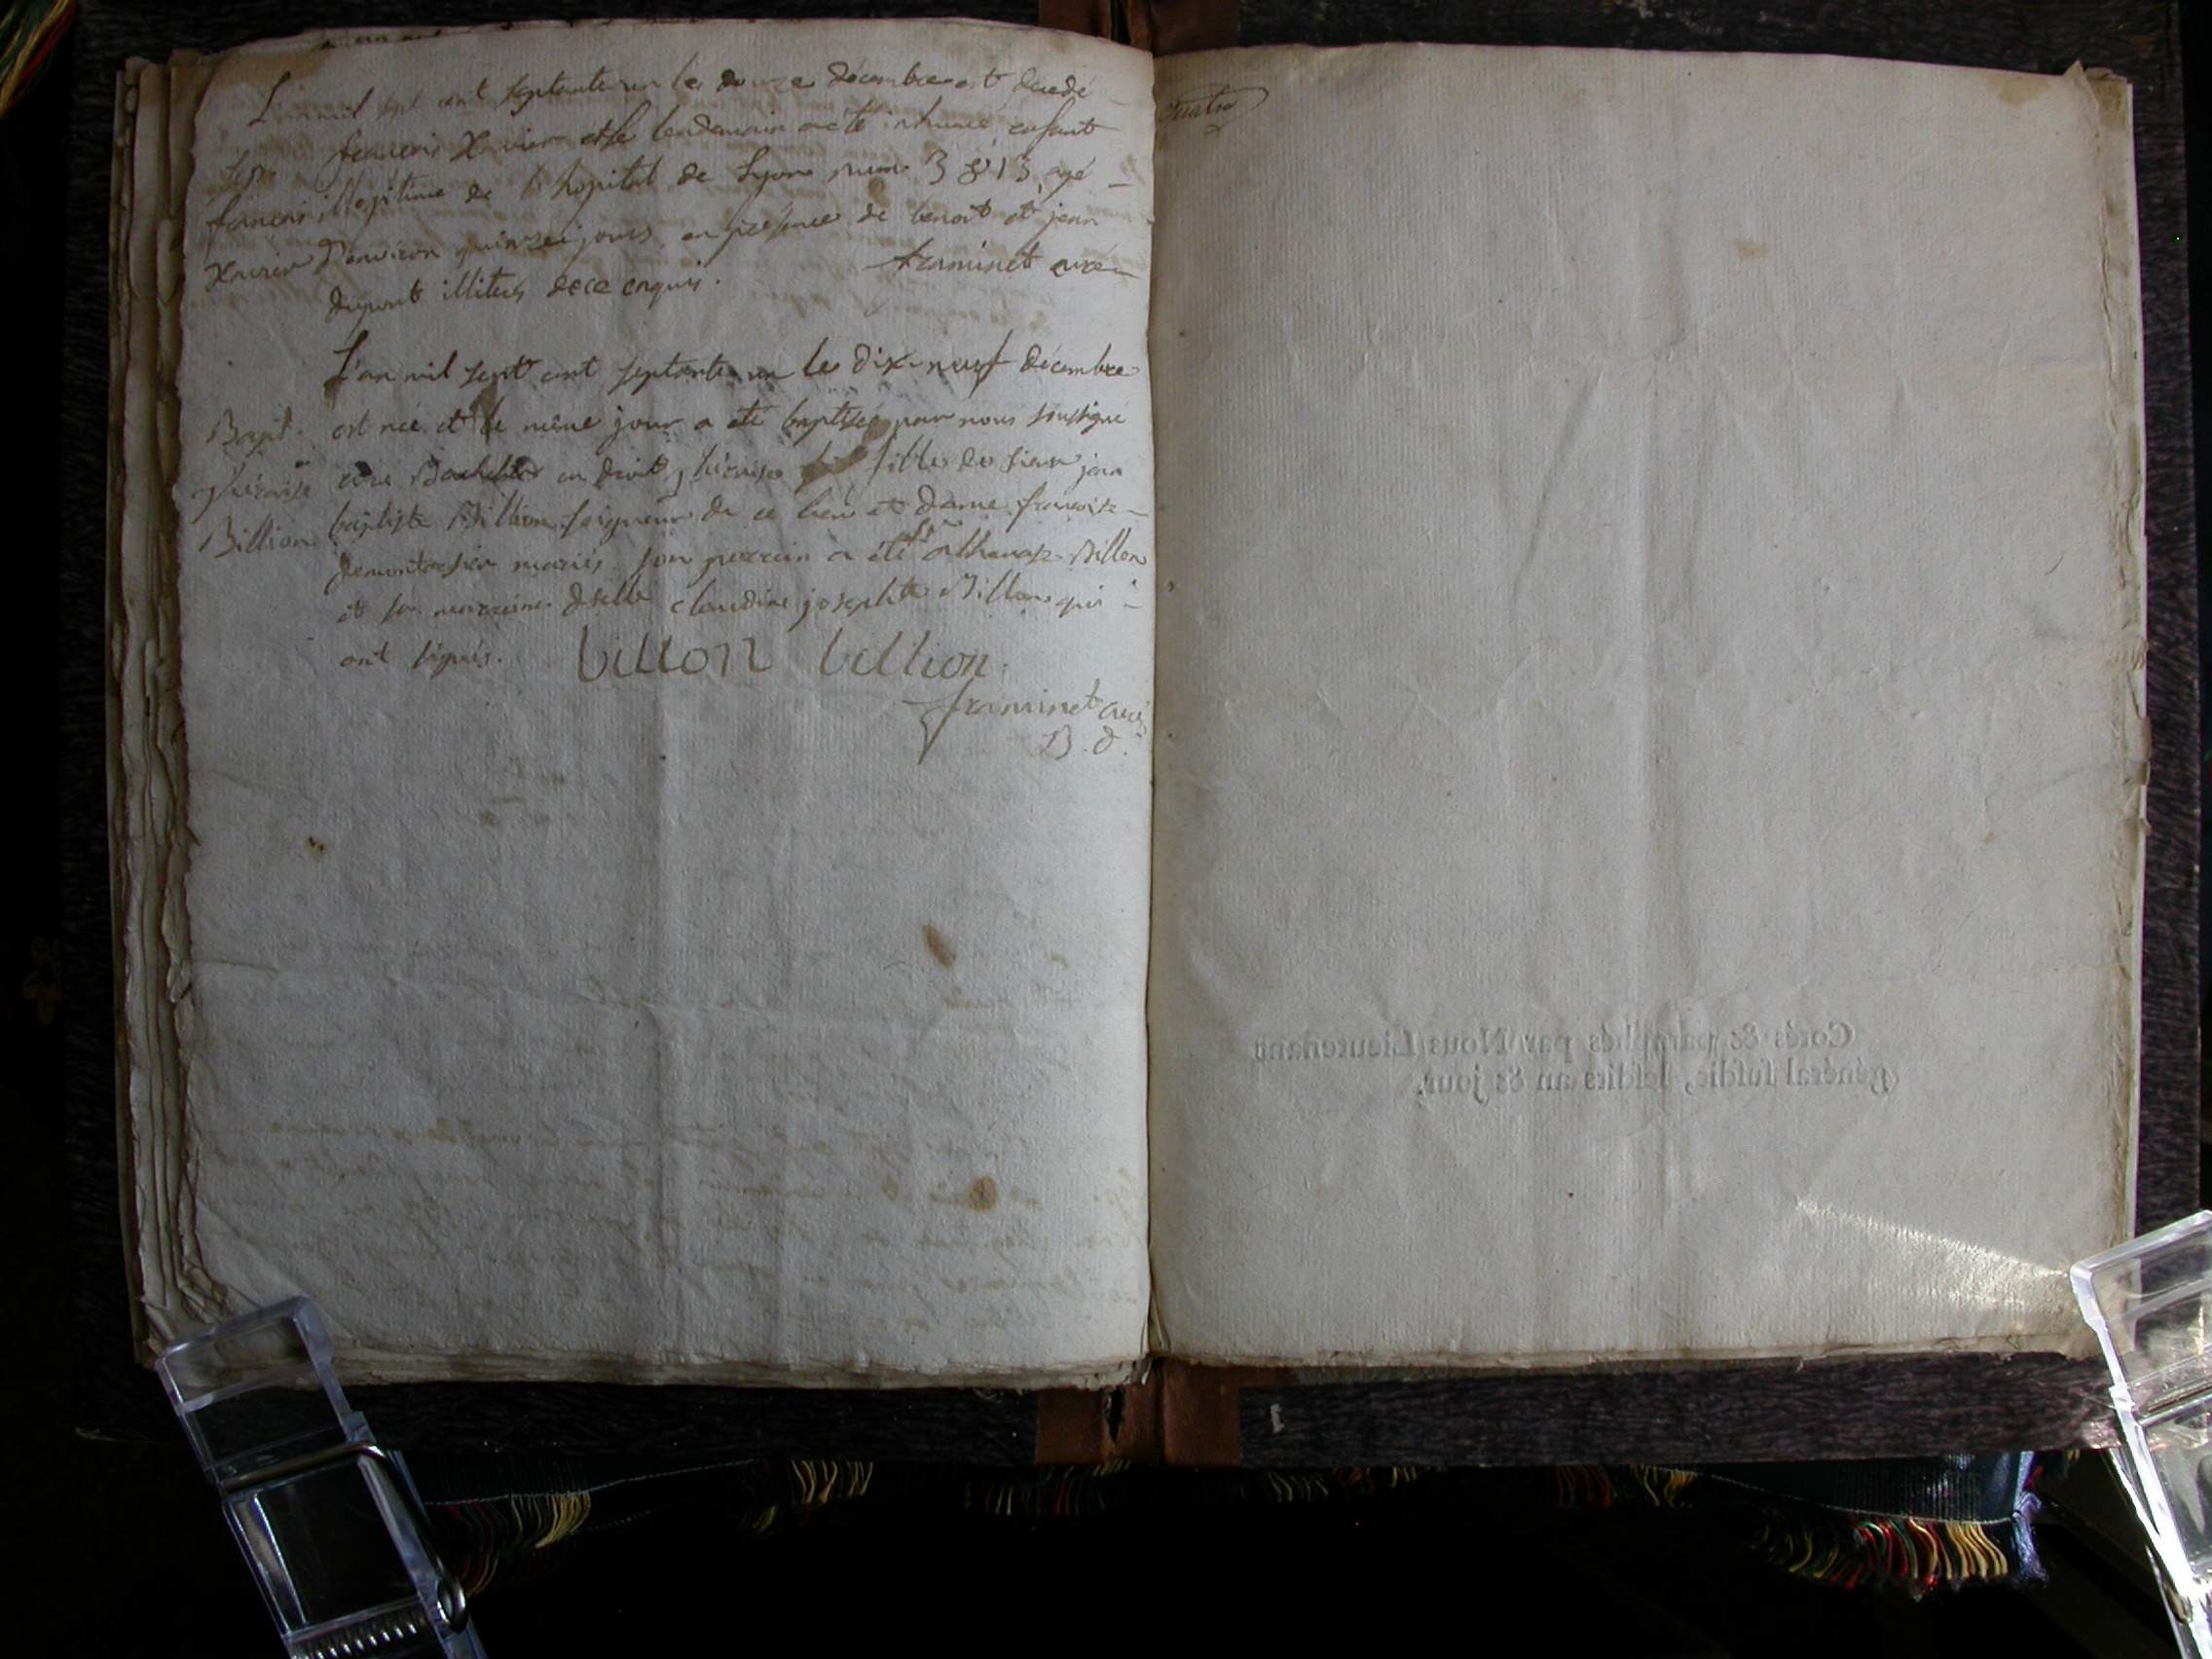 L'an mil sept cent septante un le douze décembre est decedé
Sep. francois Xavier et le lendemain a été inhumé, enfant
francois illegitime de l'hopital de Lyon num. 3813, agé
Xavier d'environ quinze jours, en présence de benoit et jean
dupont illiterés de ce enquis. framinet curé
L'an mil sept cent septante un le dix-neuf décembre
Bapt. est née et le même jour a été baptisée par nous soussigné
théraise curé Bachelier en droit, théraise fille de sieur jean
Billion baptiste Billion seigneur de ce lieu et dame francoise
demontessier mariés. son parrain a été Sr athanase Billon
et sa marraine dselle claudine josephte Billion qui
ont signés. billon billion.
framinet curé
B. d.
quatre
Cotés & paraphés par Nous Lieutenant
général susdit, lesdits an & jour.